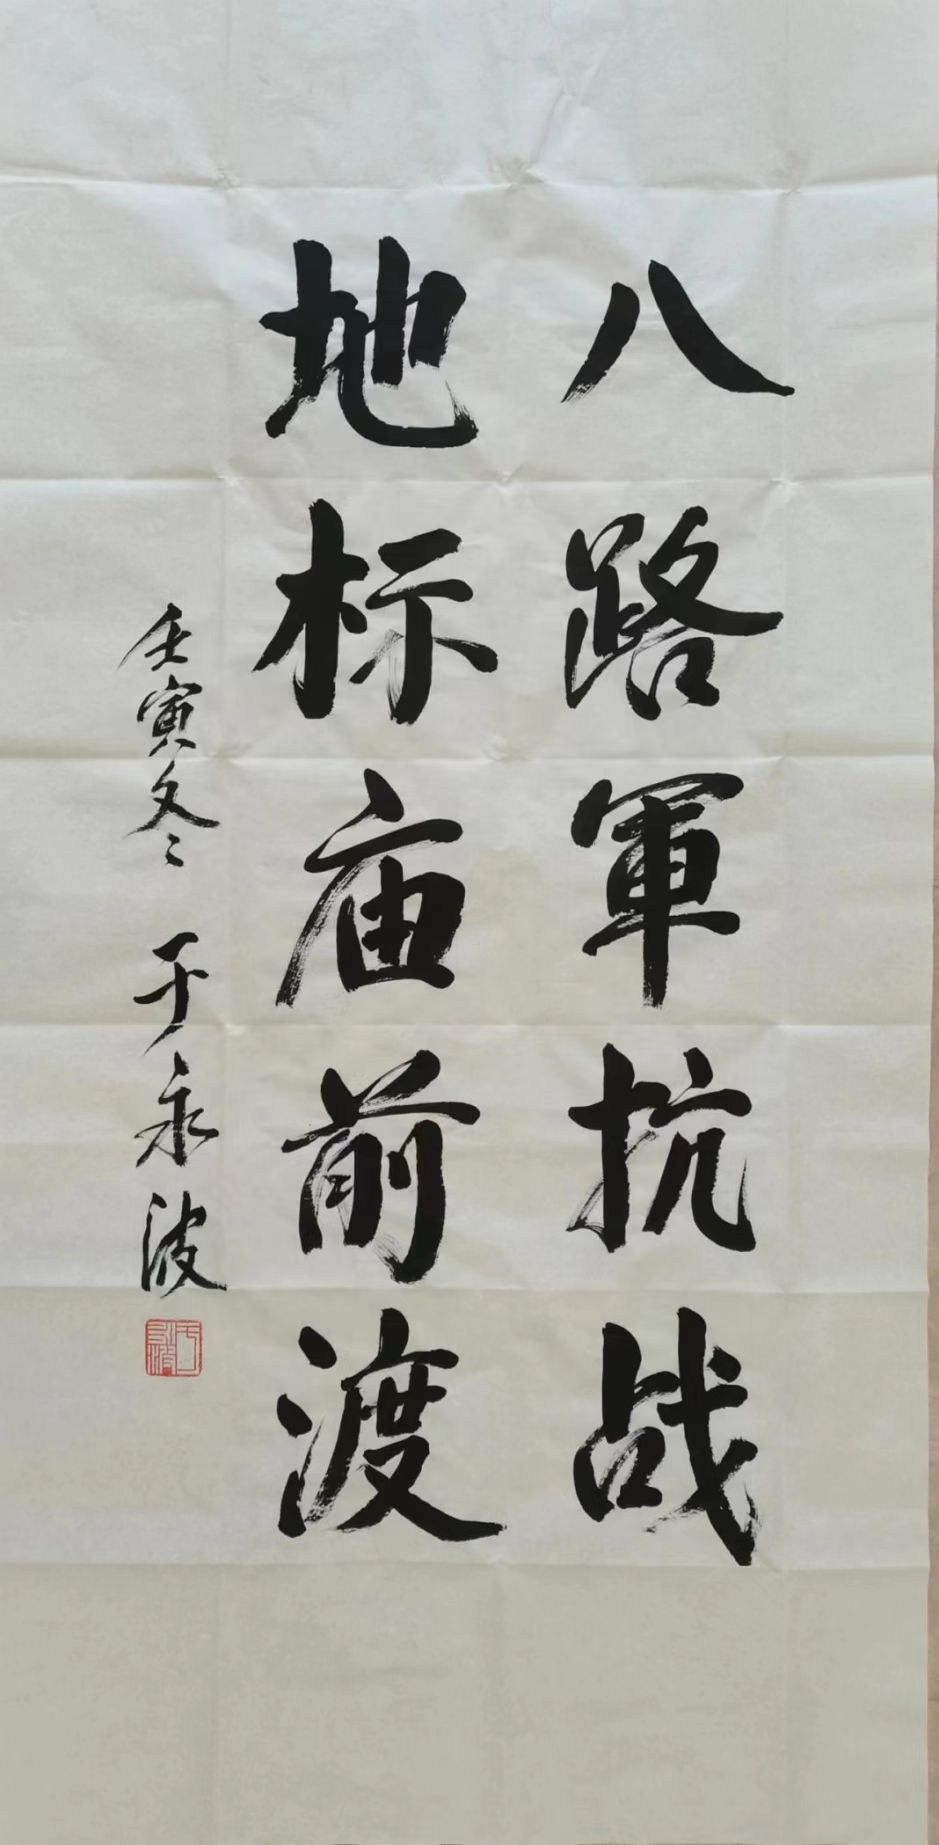 八路軍抗战
地标庙前渡
壬寅冬 于永波